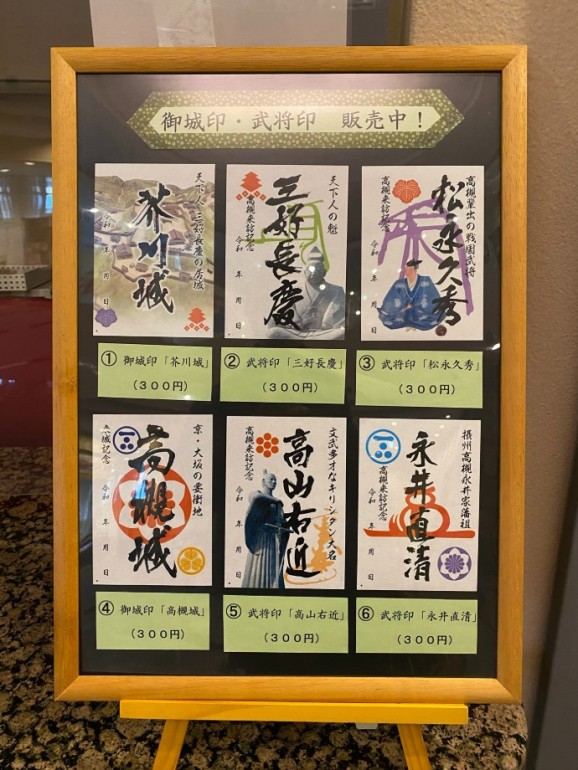 御城印・武将印　販売中！
天下人・三好長慶の居城
芥川城
令和　年　月　日
天下人の魁
三好長慶
高槻来訪記念
令和　年　月　日
高槻輩出の戦国武将
松永久秀
高槻来訪記念
令和　年　月　日
① 御城印「芥川城」
（３００円）
② 武将印「三好長慶」
（３００円）
③ 武将印「松永久秀」
（３００円）
京・大坂の要衝地
高槻城
城記念
令和　年　月　日
文武多才なキリシタン大名
高山右近
高槻来訪記念
令和　年　月　日
摂州高槻永井家藩祖
永井直清
高槻来訪記念
令和　年　月　日
④ 御城印「高槻城」
（３００円）
⑤ 武将印「高山右近」
（３００円）
⑥ 武将印「永井直清」
（３００円）